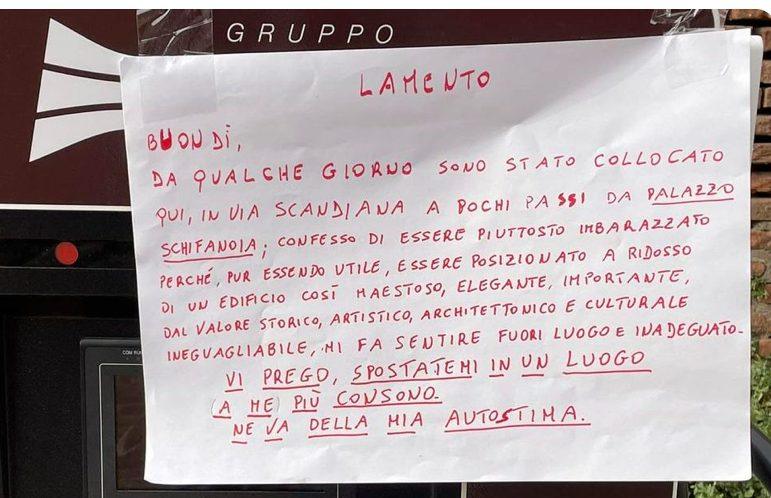 GRUPPO
LAMENTO
BUONDÌ,
DA QUALCHE GIORNO SONO STATO COLLOCATO
QUI, IN VIA SCANDIANA A POCHI PASSI DA PALAZZO
SCHIFANOIA; CONFESSO DI ESSERE PIUTTOSTO IMBARAZZATO
PERCHÉ, PUR ESSENDO UTILE, ESSERE POSIZIONATO A RIDOSSO
DI UN EDIFICIO COSÌ MAESTOSO, ELEGANTE, IMPORTANTE,
DAL VALORE STORICO, ARTISTICO, ARCHITETTONICO E CULTURALE
INEGUAGLIABILE, MI FA SENTIRE FUORI LUOGO E INADEGUATO.
VI PREGO, SPOSTATEMI IN UN LUOGO
(A ME) PIÙ CONSONO.
NE VA DELLA MIA AUTOSTIMA.